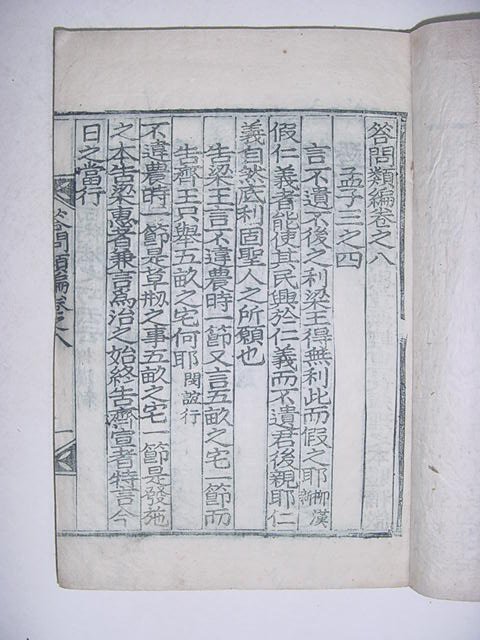 答問類編卷之八
孟子三之四
言不遺不後之利梁王得無利此而假之耶柳漢新
假仁義者能使其民興於仁義而不遺君後親耶仁
義自然底利固聖人之所願也
告梁王言不違農時一節又言五畝之宅一節而
告齊王只舉五畝之宅何耶閔誼行
不違農時一節是草刱之事五畝之宅一節是發施
之本告梁惠者兼言爲治之始終告齊宣者特言今
日之當行
答問類編卷之八